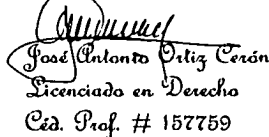 José Antonio Ortiz Cerón
Licenciado en Derecho
Céd. Prof. # 157759